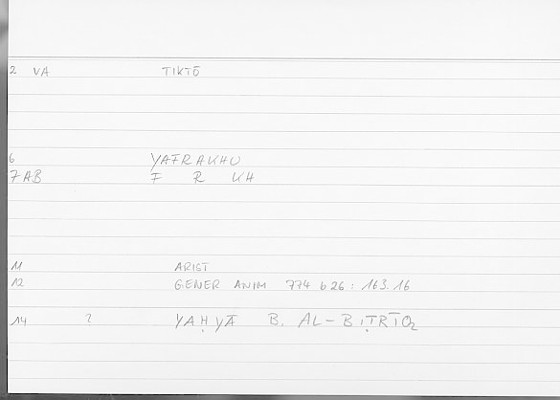 2 VA TIKTŌ
6 YAFRAKHU
7AB F R KH
11 ARIST
12 GENER ANIM 774 b 26 : 163.16
14 ? YAḤYĀ B. AL-BIṬRĪQ